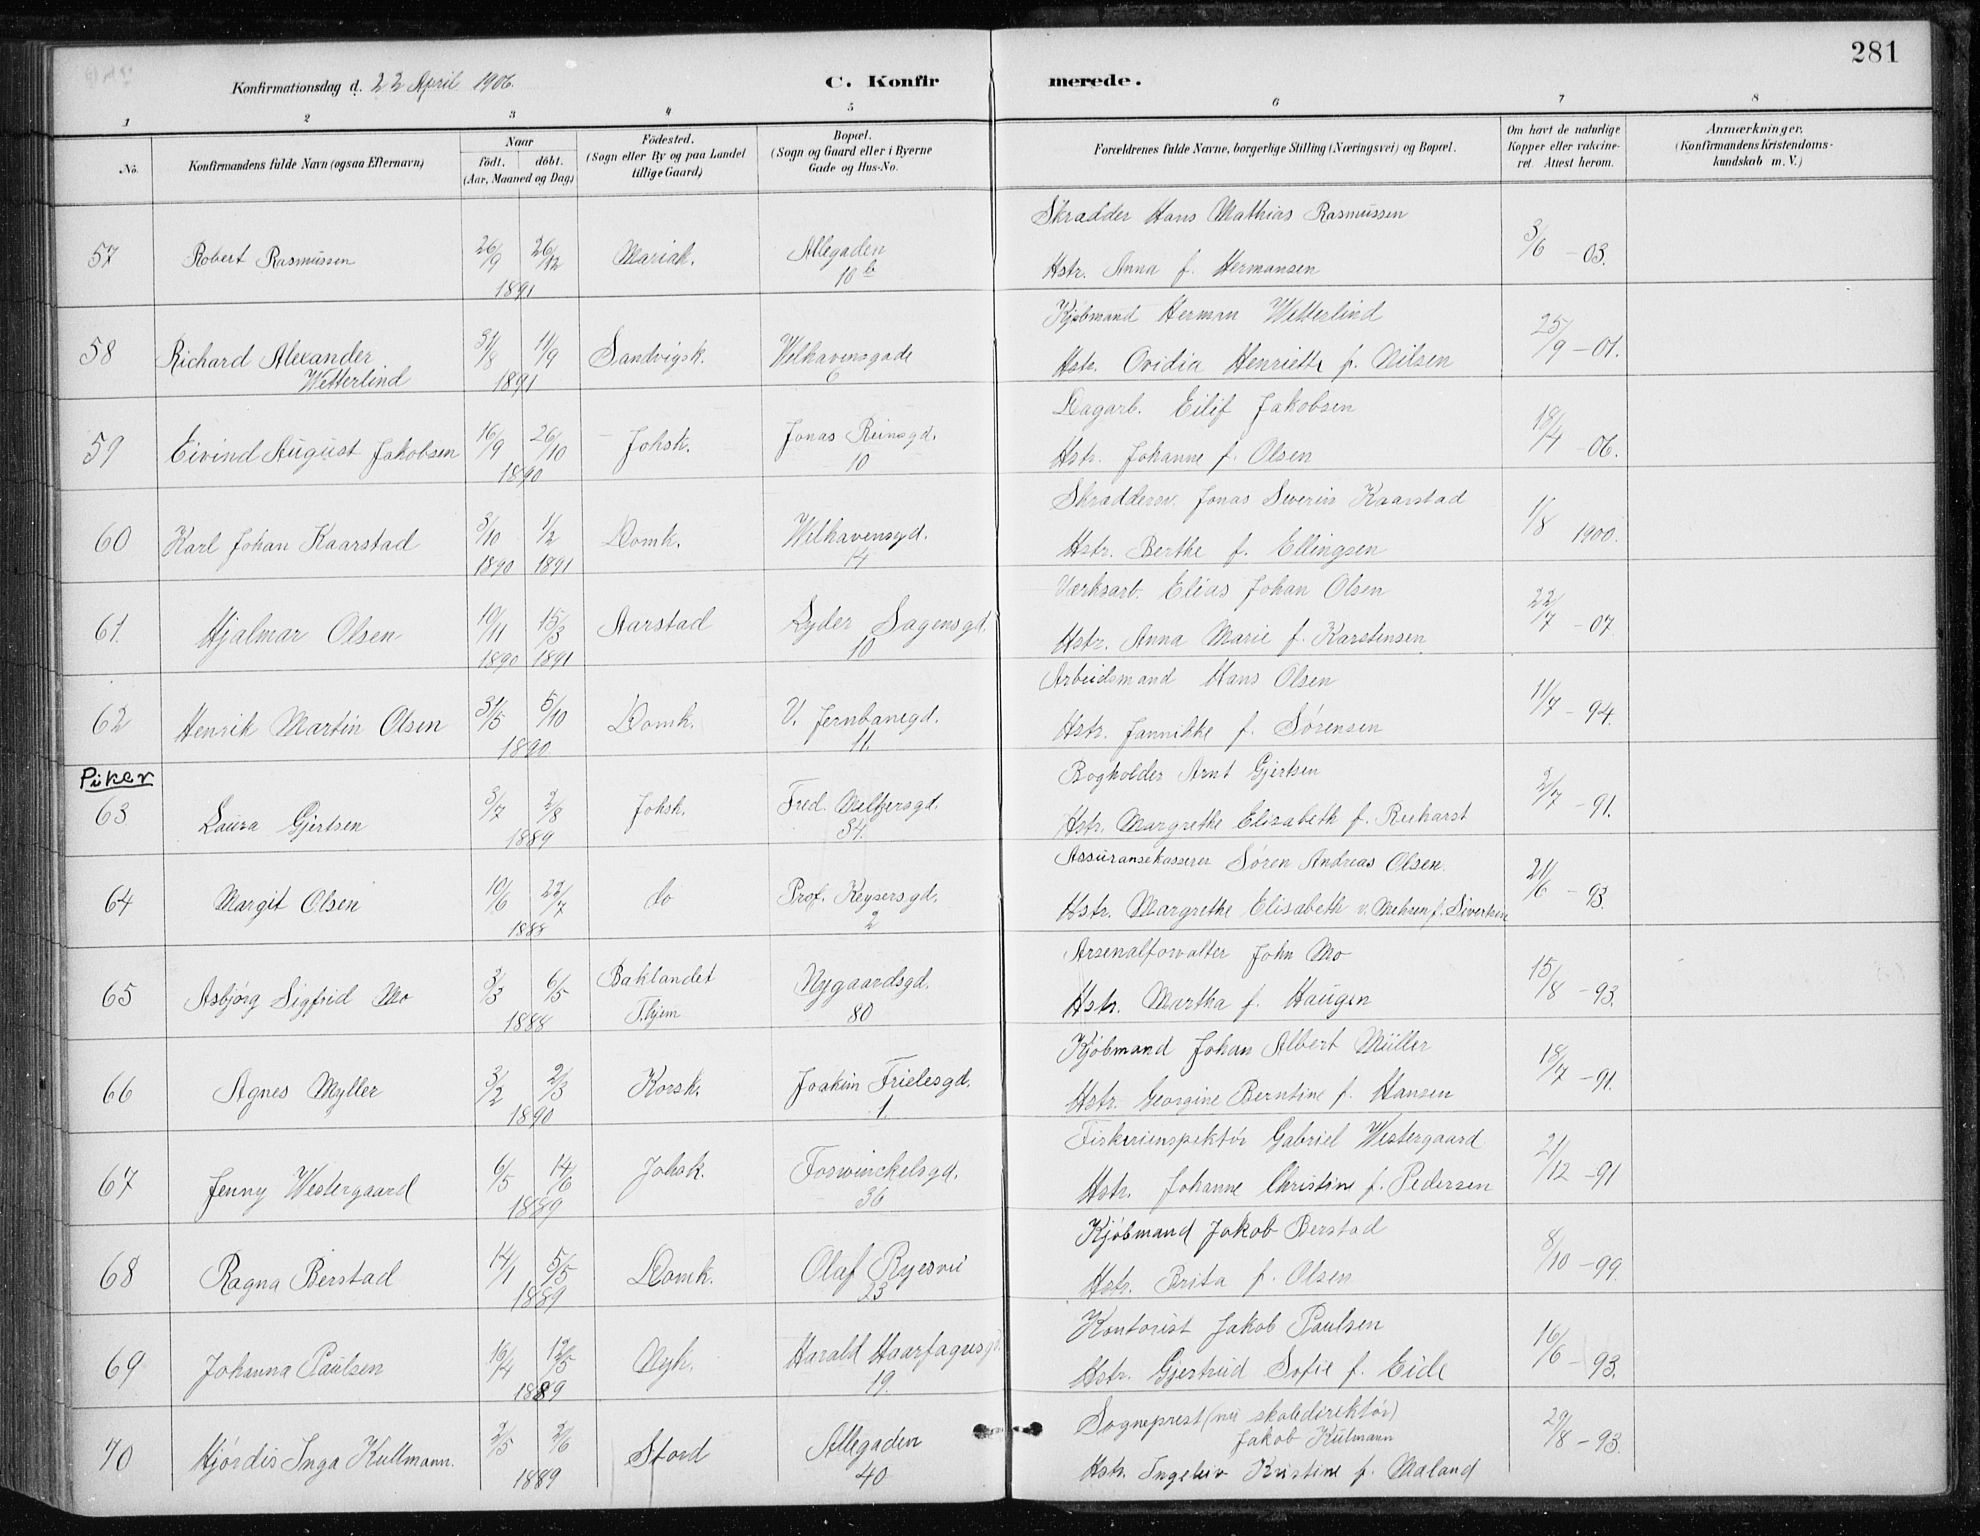 281
Konfirmationsdag d. 22 April 1906.
C. Konfirmerede.
1 2 3 4 5 6 7 8
No.
Konfirmandens fulde Navn (ogsaa Efternavn)
Naar
födt. döbt.
(Aar, Maaned og Dag)
Födested.
(Sogn eller By og paa Landet
tillige Gaard)
Bopæl.
(Sogn og Gaard eller i Byerne
Gade og Hus-No.
Forældrenes fulde Navne, borgerlige Stilling (Næringsvei) og Bopæl.
Om havt de naturlige
Kopper eller vakcine-
ret. Attest herom.
Anmærkninger.
(Konfirmandens Kristendoms-
kundskab m. V.)
57 Robert Rasmussen 26/9 26/12 1891 Mariak. Allegaden 10 b
Skrædder Hans Mathias Rasmussen
Hstr. Anna f. Hermansen
3/6 - 03.
58 Richard Alexander
Wetterlind
31/8 11/9 1891 Sandvigsk. Welhavensgade 6
Kjøbmand Herman Wetterlind
Hstr. Ovidia Henriette f. Nilsen
25/9 - 01.
59 Eivind August Jakobsen 16/9 26/10 1890 Johsk. Jonas Reinsgd. 10
Dagarb. Eilif Jakobsen
Hstr. Johanne f. Olsen
18/4 06.
60 Karl Johan Kaarstad 3/10 1890 1/2 1891 Domk. Welhavensgd. 14
Skræddersv. Jonas Severin Kaarstad
Hstr. Berthe f. Ellingsen
1/8 1900.
61. Hjalmar Olsen 10/11 1890 15/3 1891 Aarstad Lyder Sagensgd. 10
Værksarb. Elias Johan Olsen
Hstr. Anna Marie f. Karstensen
22/7 - 07.
62 Henrik Martin Olsen 31/5 5/10 1890 Domk. V. Jernbanegd. 11.
Arbeidsmand Hans Olsen
Hstr. Jannikke f. Sørensen
11/7 - 94.
Piker
63 Laura Gjertsen 3/7 2/8 1889 Johsk. Fred. Meltzersgd. 34.
Bogholder Arnt Gjertsen
Hstr. Margrethe Elisabeth f.
2/7 - 91.
64 Margit Olsen 10/6 22/7 1888 do Prof. Keysersgd. 2
Assuransekasserer Søren Andreas Olsen.
Hstr. Margrethe Elisabeth v. Mehren f. Sivertsen
21/6 - 93.
65 Asbjørg Sigfrid Mo 3/3 6/5 1888 Baklandet
T.hjem
Nygaardsgd. 80
Arsenalforvalter John Mo
Hstr. Martha f. Haugen
15/8 - 93.
66 Agnes Myller 3/2 2/3 1890 Korsk. Joakim Frielesgd. 1.
Kjøbmand Johan Albert Müller
Hstr. Georgine Berntine f. Hansen
18/7 - 91.
67 Jenny Westergaard 6/5 14/6 1889 Johsk. Foswinckelsgd. 36
Fiskeriinspektør Gabriel Westergaard
Hstr. Johanne Christine f. Pedersen
21/12 - 91
68 Ragna Berstad 14/1 5/5 1889 Domk. Olaf Ryesvei 23
Kjøbmand Jakob Berstad
Hstr. Brita f. Olsen
8/10 - 99.
69 Johanna Paulsen 16/4 12/5 1889 Nyk. Harald Haarfagresgd. 19.
Kontorist Jakob Paulsen
Hstr. Gjertrud Sofie f. Eide
16/6 - 93.
70 Hjørdis Inga Kullmann. 2/5 2/6 1889 Stord Allegaden 40
Sogneprest (nu skoledirektør)
Jakob Kulmann
Hstr. Ingeleiv Kristine f. Maland
29/8 - 93.